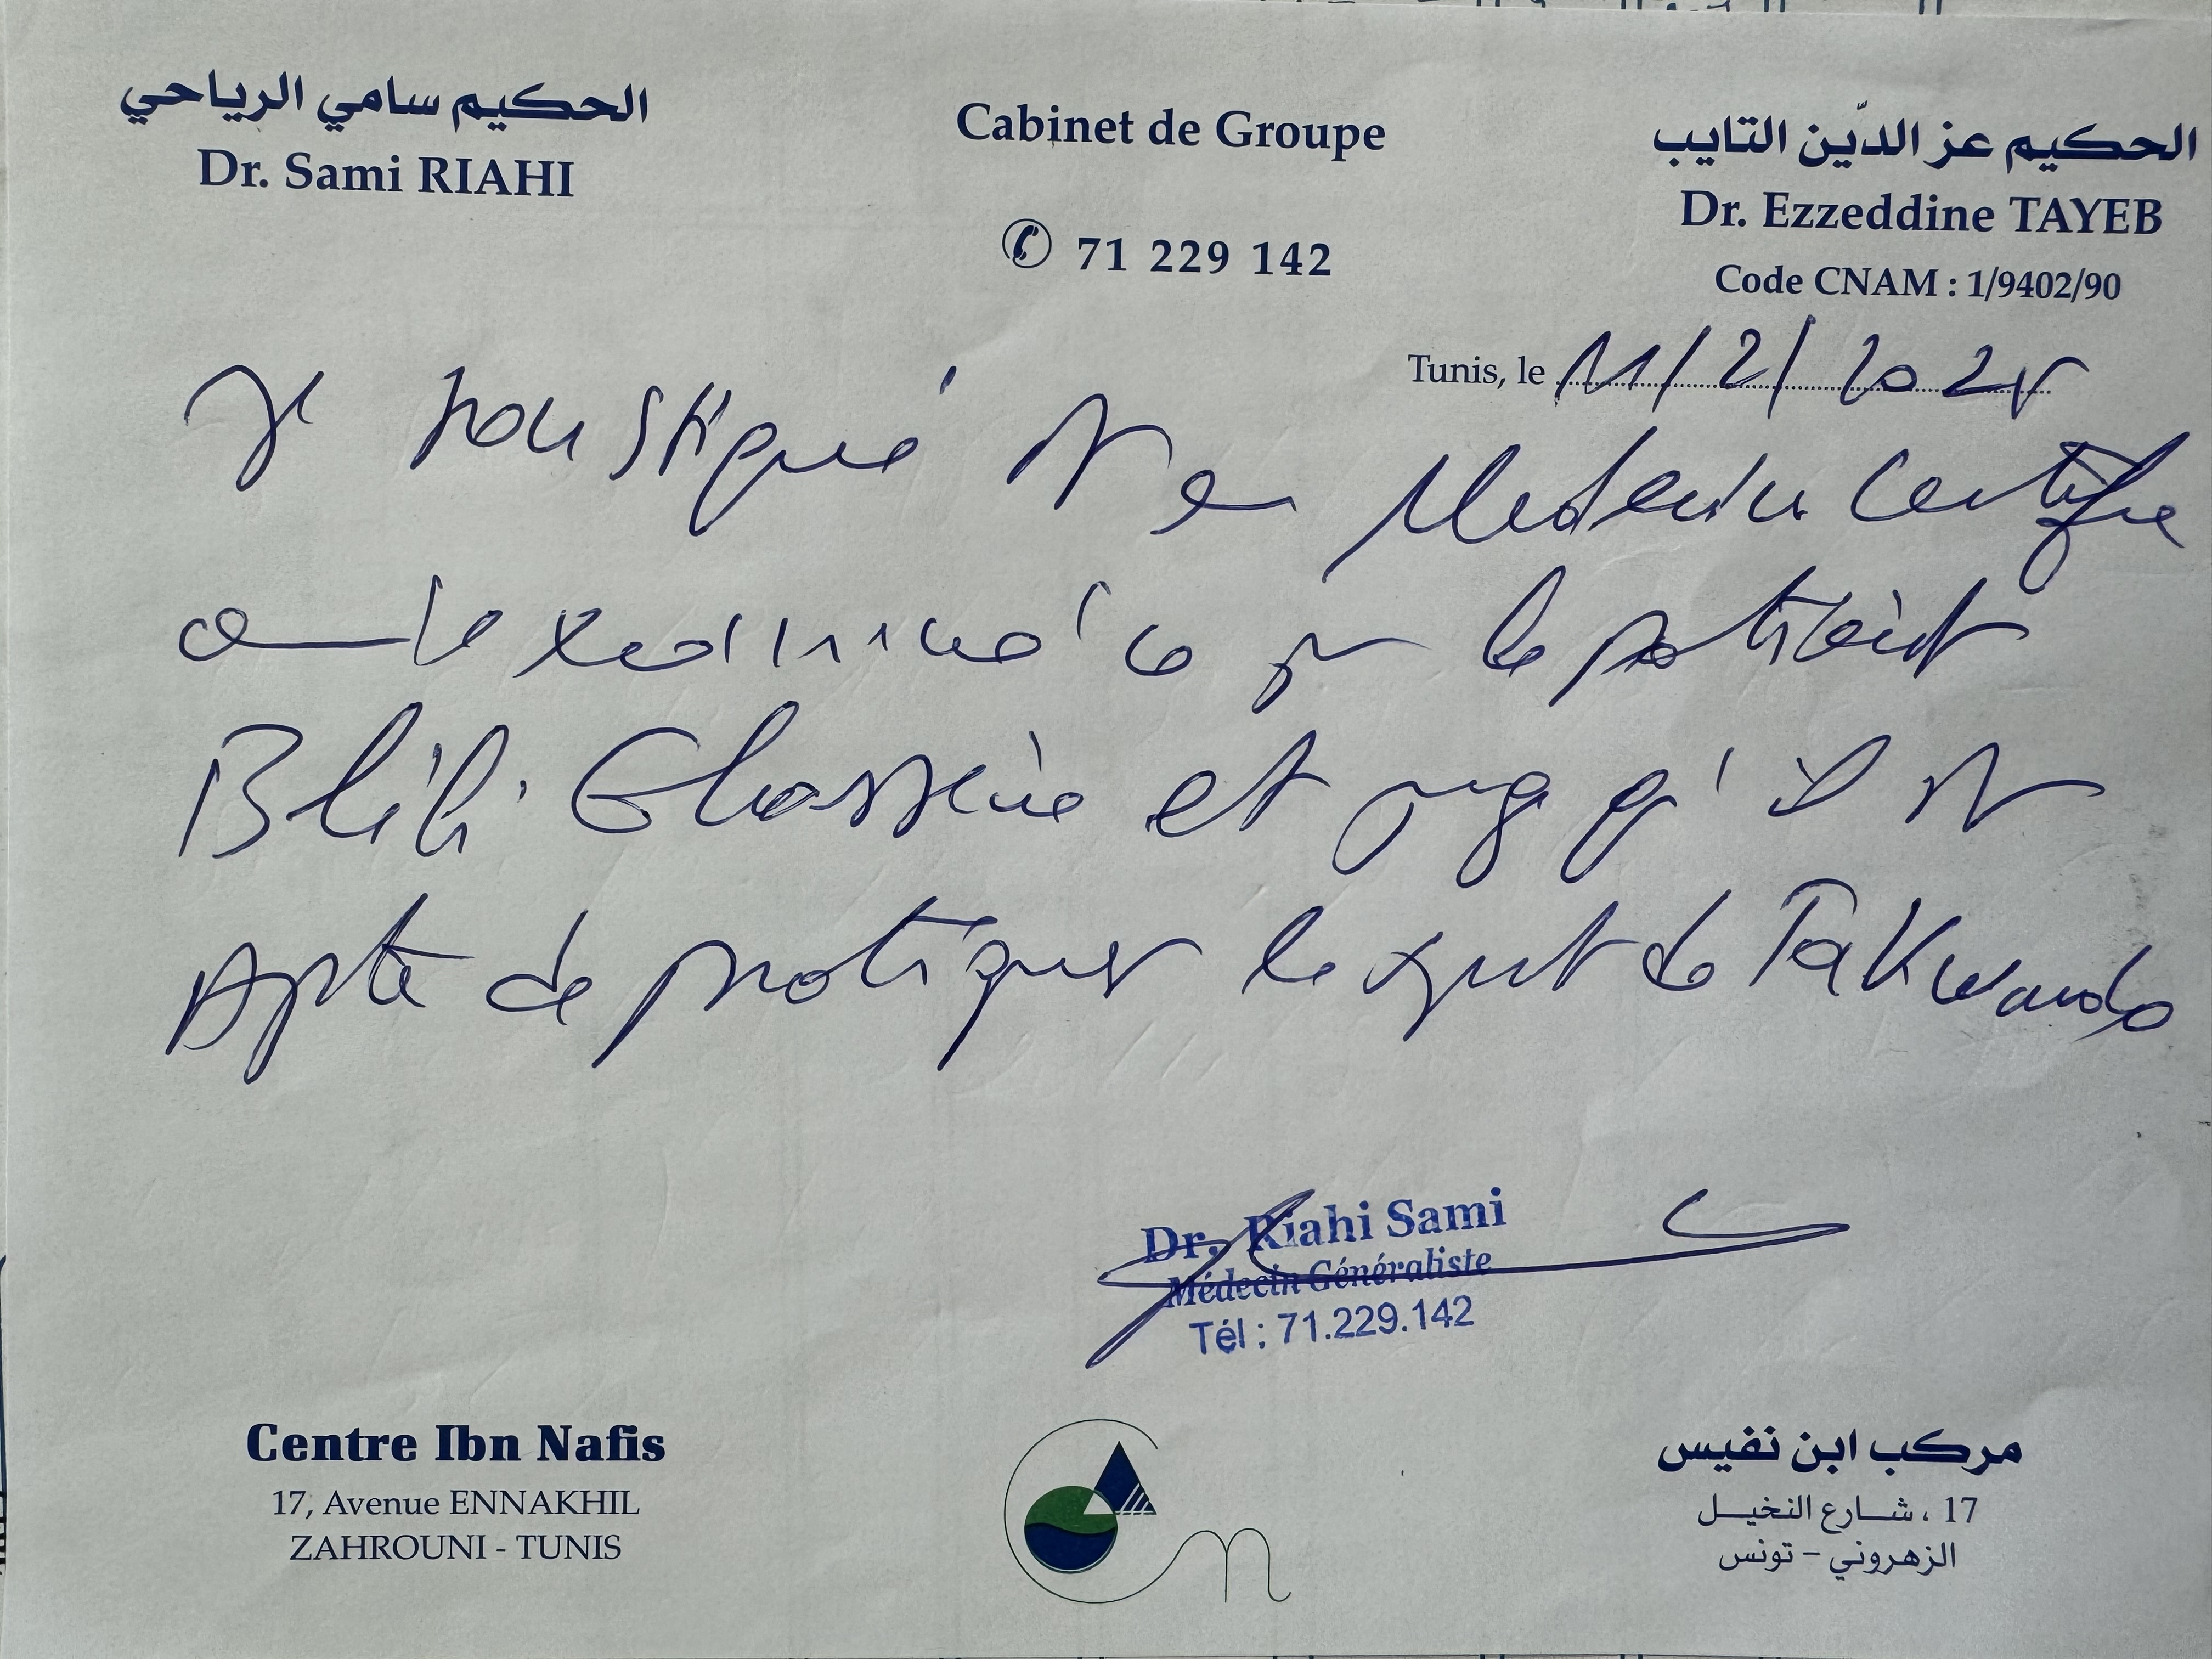 الحكيم سامي الرياحي
Dr. Sami RIAHI
Cabinet de Groupe
✆ 71 229 142
الحكيم عز الدّين التايب
Dr. Ezzeddine TAYEB
Code CNAM : 1/9402/90
Tunis, le 11/2/2025
Je soussigné Dr en Medecin certifie
examiné ce jour le patient
Blili Ghassène et juge qu'il est
Apte de pratiquer le sport de Taikwando
Dr. Riahi Sami
Médecin Généraliste
Tél : 71.229.142
Centre Ibn Nafis
17, Avenue ENNAKHIL
ZAHROUNI - TUNIS
مركب ابن نفيس
17 ، شارع النخيل
الزهروني - تونس